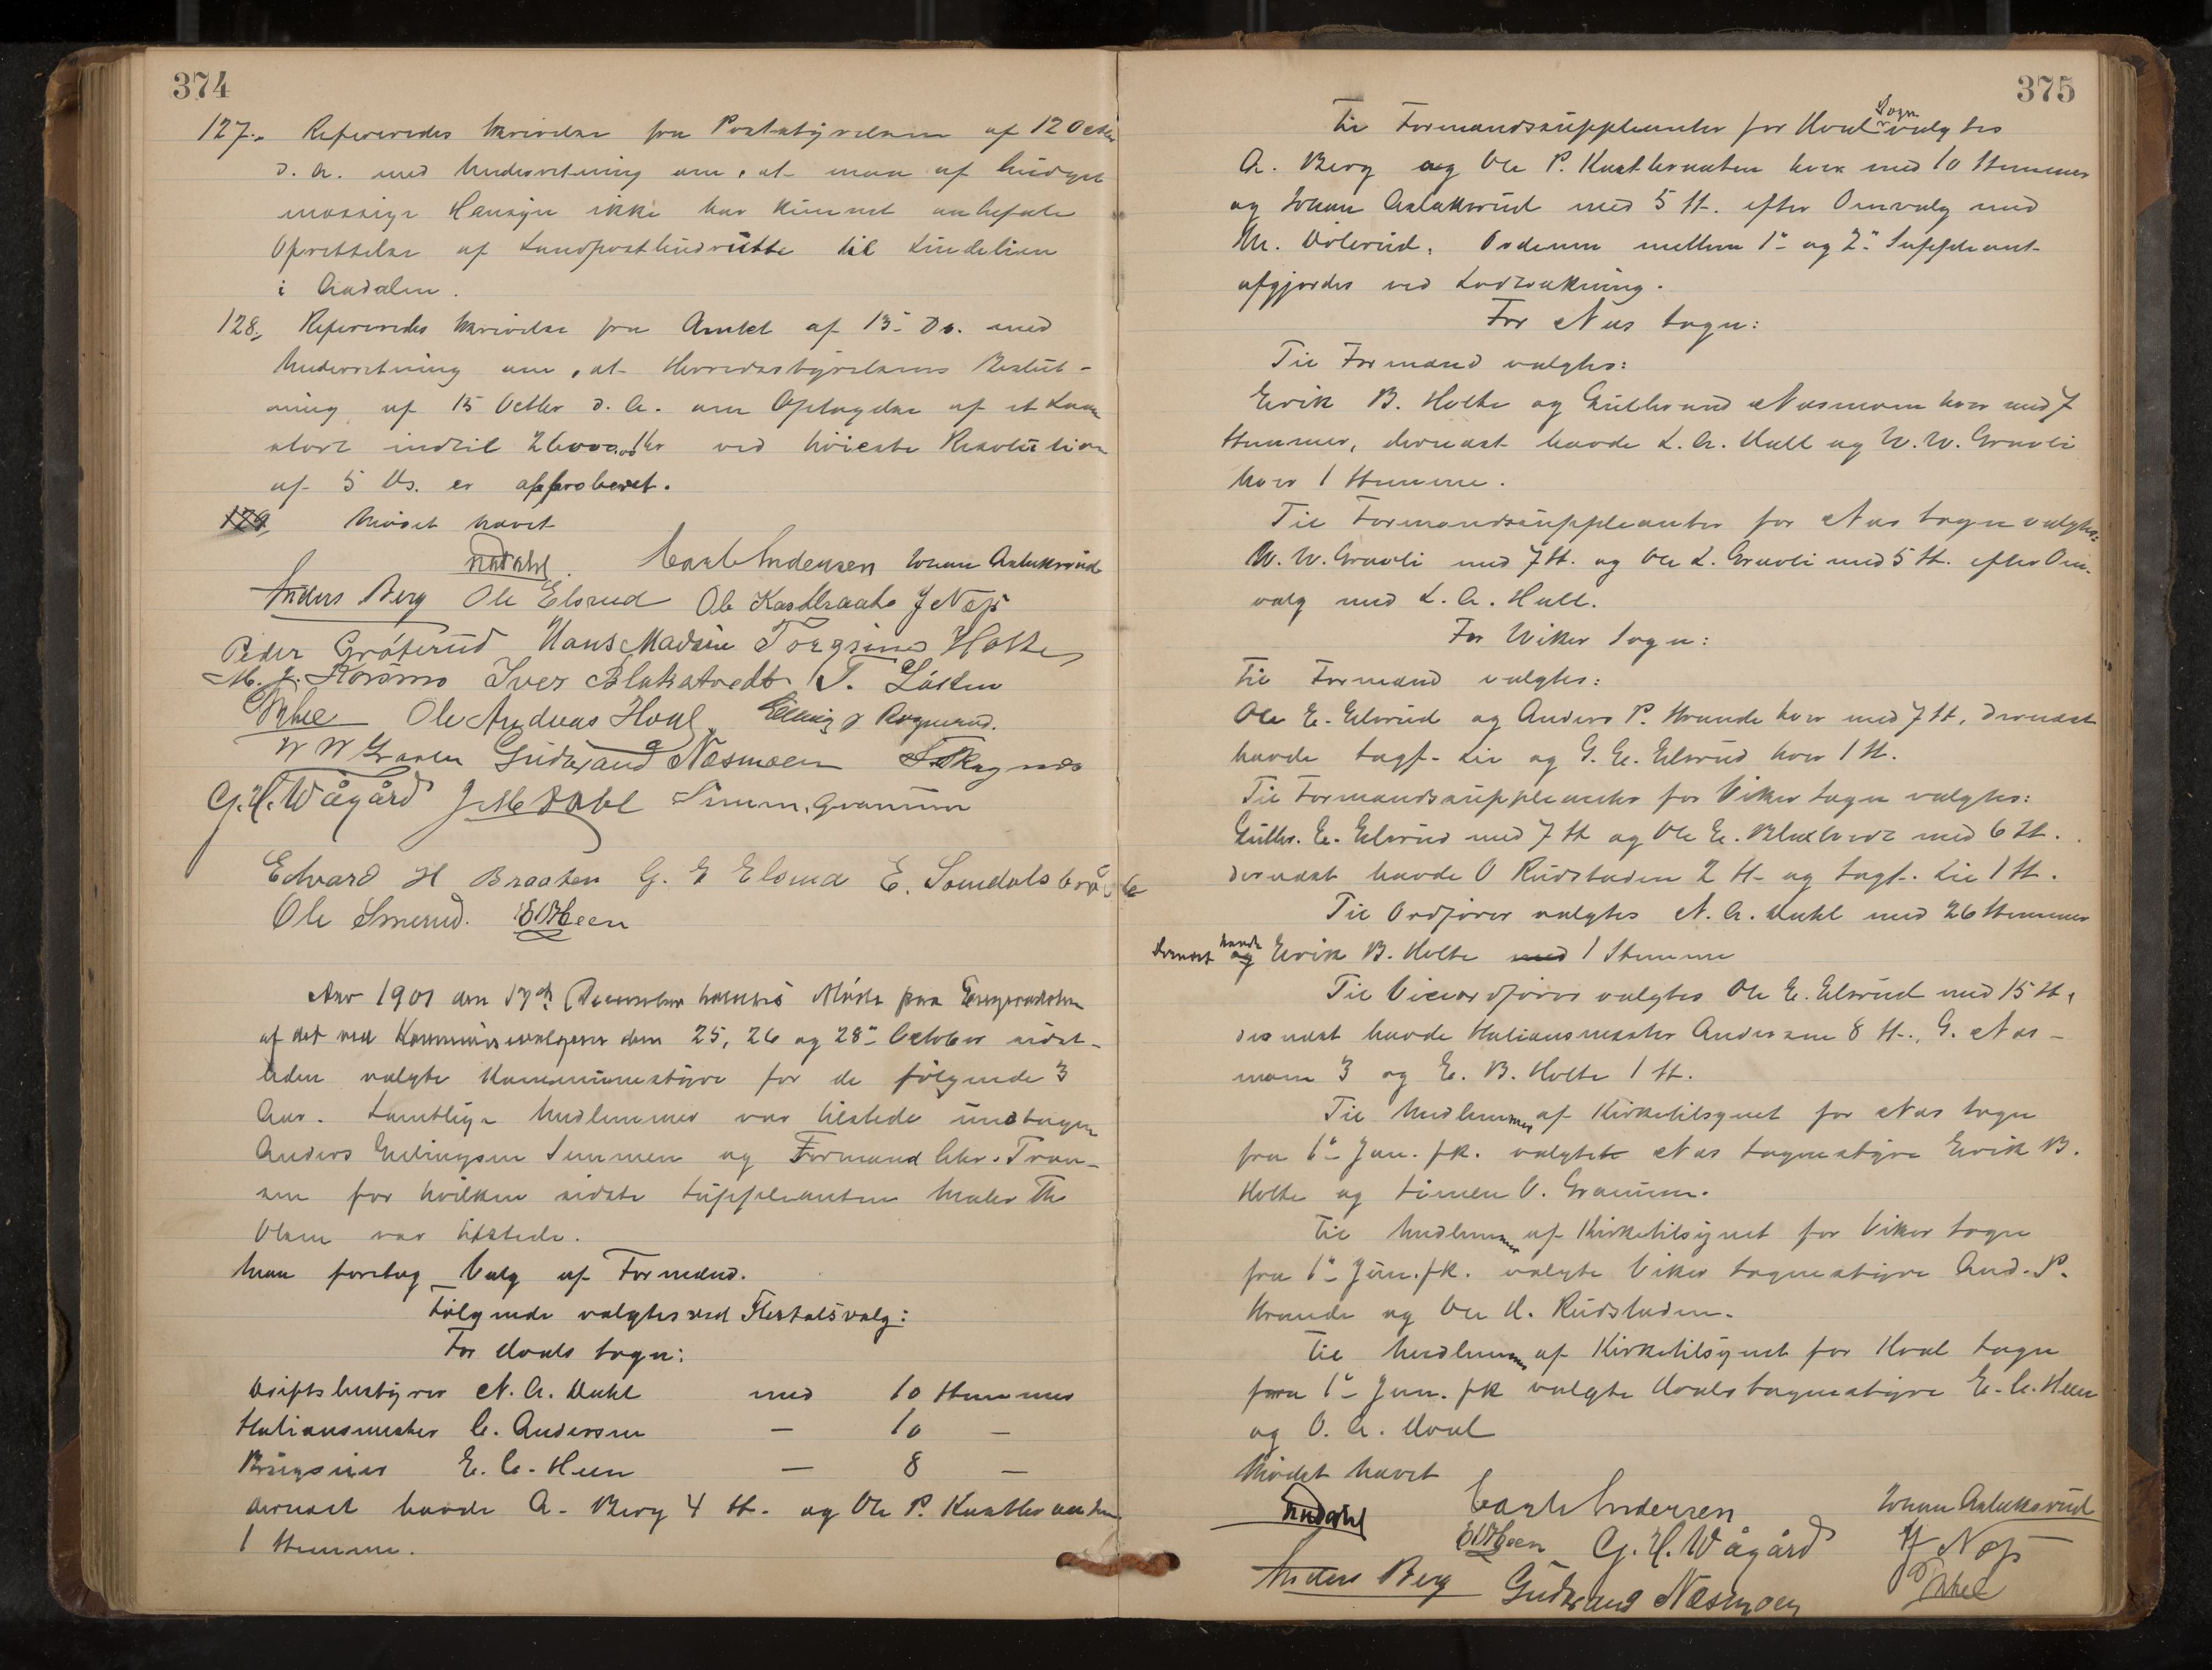 374
127. Refereredes Skrivelse fra Poststyrelsen af 12 Octbr
d. A. med Underretning om, at man af budget
mæssige Hensyn ikke har kunnet anbefale
Oprettelse af Landpostbudrutte til Lindelien
i Aadalen.
128. Refereredes Skrivelse fra Amtet af 13- Ds. med
Underretning om, at Herredsstyrelsens Beslut-
ning af 15 Octbr d. A. om Optagelse af et Laan
stort indtil 26000,00 Kr ved høieste Resolution
af 5 Ds. er approberet.
129. Mødet hævet
NADahl. Carl Andersen Johan Aslaksrud
Anders Berg Ole Elsrud Ole Kastbraate J Næss
Peder Grøterud Hans Madsen Torgeirsen Holte
M. J. Iver Blakstvedt T.
Ole Andreas Hval Elling J Rognerud.
W W Graven Gudbrand Næsmoen
G. H. Wågård J M Dahl Simen, Gramum
Edvard H Braaten G. E Elsrud E. Somdalsbråte
Ole Smerud. ECHeen
Aar 1901 den 17de December holdtes Møde paa Eugeradsten
af det ved Kommunevalgene den 25, 26 og 28- October sidst-
leden valgte Kommunestyre for de følgende 3
Aar. Samtlige Medlemmer var tilstede undtagen
Anders Ellingsen Semmen og Formand Chr. Tran-
sen for hvilken sidste Suppleanten Maler Th
Olsen var tilstede.
Man foretog Valg af Formænd.
Følgende valgtes ved Flertalsvalg:
For Hvals Sogn:
Driftsbestyrer N. A. Dahl med 10 Stemmer
Stationsmester C. Andersen — 10 —
Brugseier E. C. Heen — 8 —
dernæst havde A. Berg 4 St. og Ole P. Kastbraaten
1 Stemme.
375
Til Formandssuppleanter for Hval Sogn valgtes
A. Berg og Ole P. Kastbraaten hver med 10 Stemmer
og Johan Aslaksrud med 5 St. efter Omvalg med
M. Ordenen mellem 1- og 2- Suppleant
afgjordes ved Lodtrækning.
For Næs Sogn:
Til Formænd valgtes:
Eirik B. Holte og Gulbrand Næsmoen hver med 7
Stemmer, dernæst havde L. A. Hall og W. W. Gravli
hver 1 Stemme.
Til Formandssuppleanter for Næs Sogn valgtes:
W. W. Gravli med 7 St. og Ole L. Gravli med 5 St. efter Om-
valg med L. A. Hall.
For Viker Sogn:
Til Formænd valgtes:
Ole E. Elsrud og Anders P. Strande hver med 7 St, dernæst
havde Sagf. Lie og G. E. Elsrud hver 1 St.
Til Formandssuppleanter for Viker Sogn valgtes:
Gulbr. E. Elsrud med 7 St og Ole E. Blakstvedt med 6 St.
dernæst havde O Rudstaden 2 St. og Sagf. Lie 1 St.
Til Ordfører valgtes N. A. Dahl med 26 Stemmer
dernæst havde og Eirik B. Holte med 1 Stemme
Til Viceordfører valgtes Ole E. Elsrud med 15 St,
dernæst havde Stationsmester Andersen 8 St., G. Næs-
moen 3 og E. B. Holte 1 St.
Til Medlemmer af Kirketilsynet for Næs Sogn
fra 1- Jan. fk. valgte Næs Sognestyre Eirik B.
Holte og Simen O. Gramum.
Til Medlemmer af Kirketilsynet for Viker Sogn
fra 1- Jan. fk. valgte Viker Sognestyre And. P.
Strande og Ole H. Rudstaden.
Til Medlemmer af Kirketilsynet for Hval Sogn
fra 1- Jan. fk valgte Hvals Sognestyre E. C. Heen
og O. A. Hval
Mødet hævet
NADahl Carl Andersen Johan Aslaksrud
ECHeen G. H. Wågård J Næss
Anders Berg Gudbrand Næsmoen